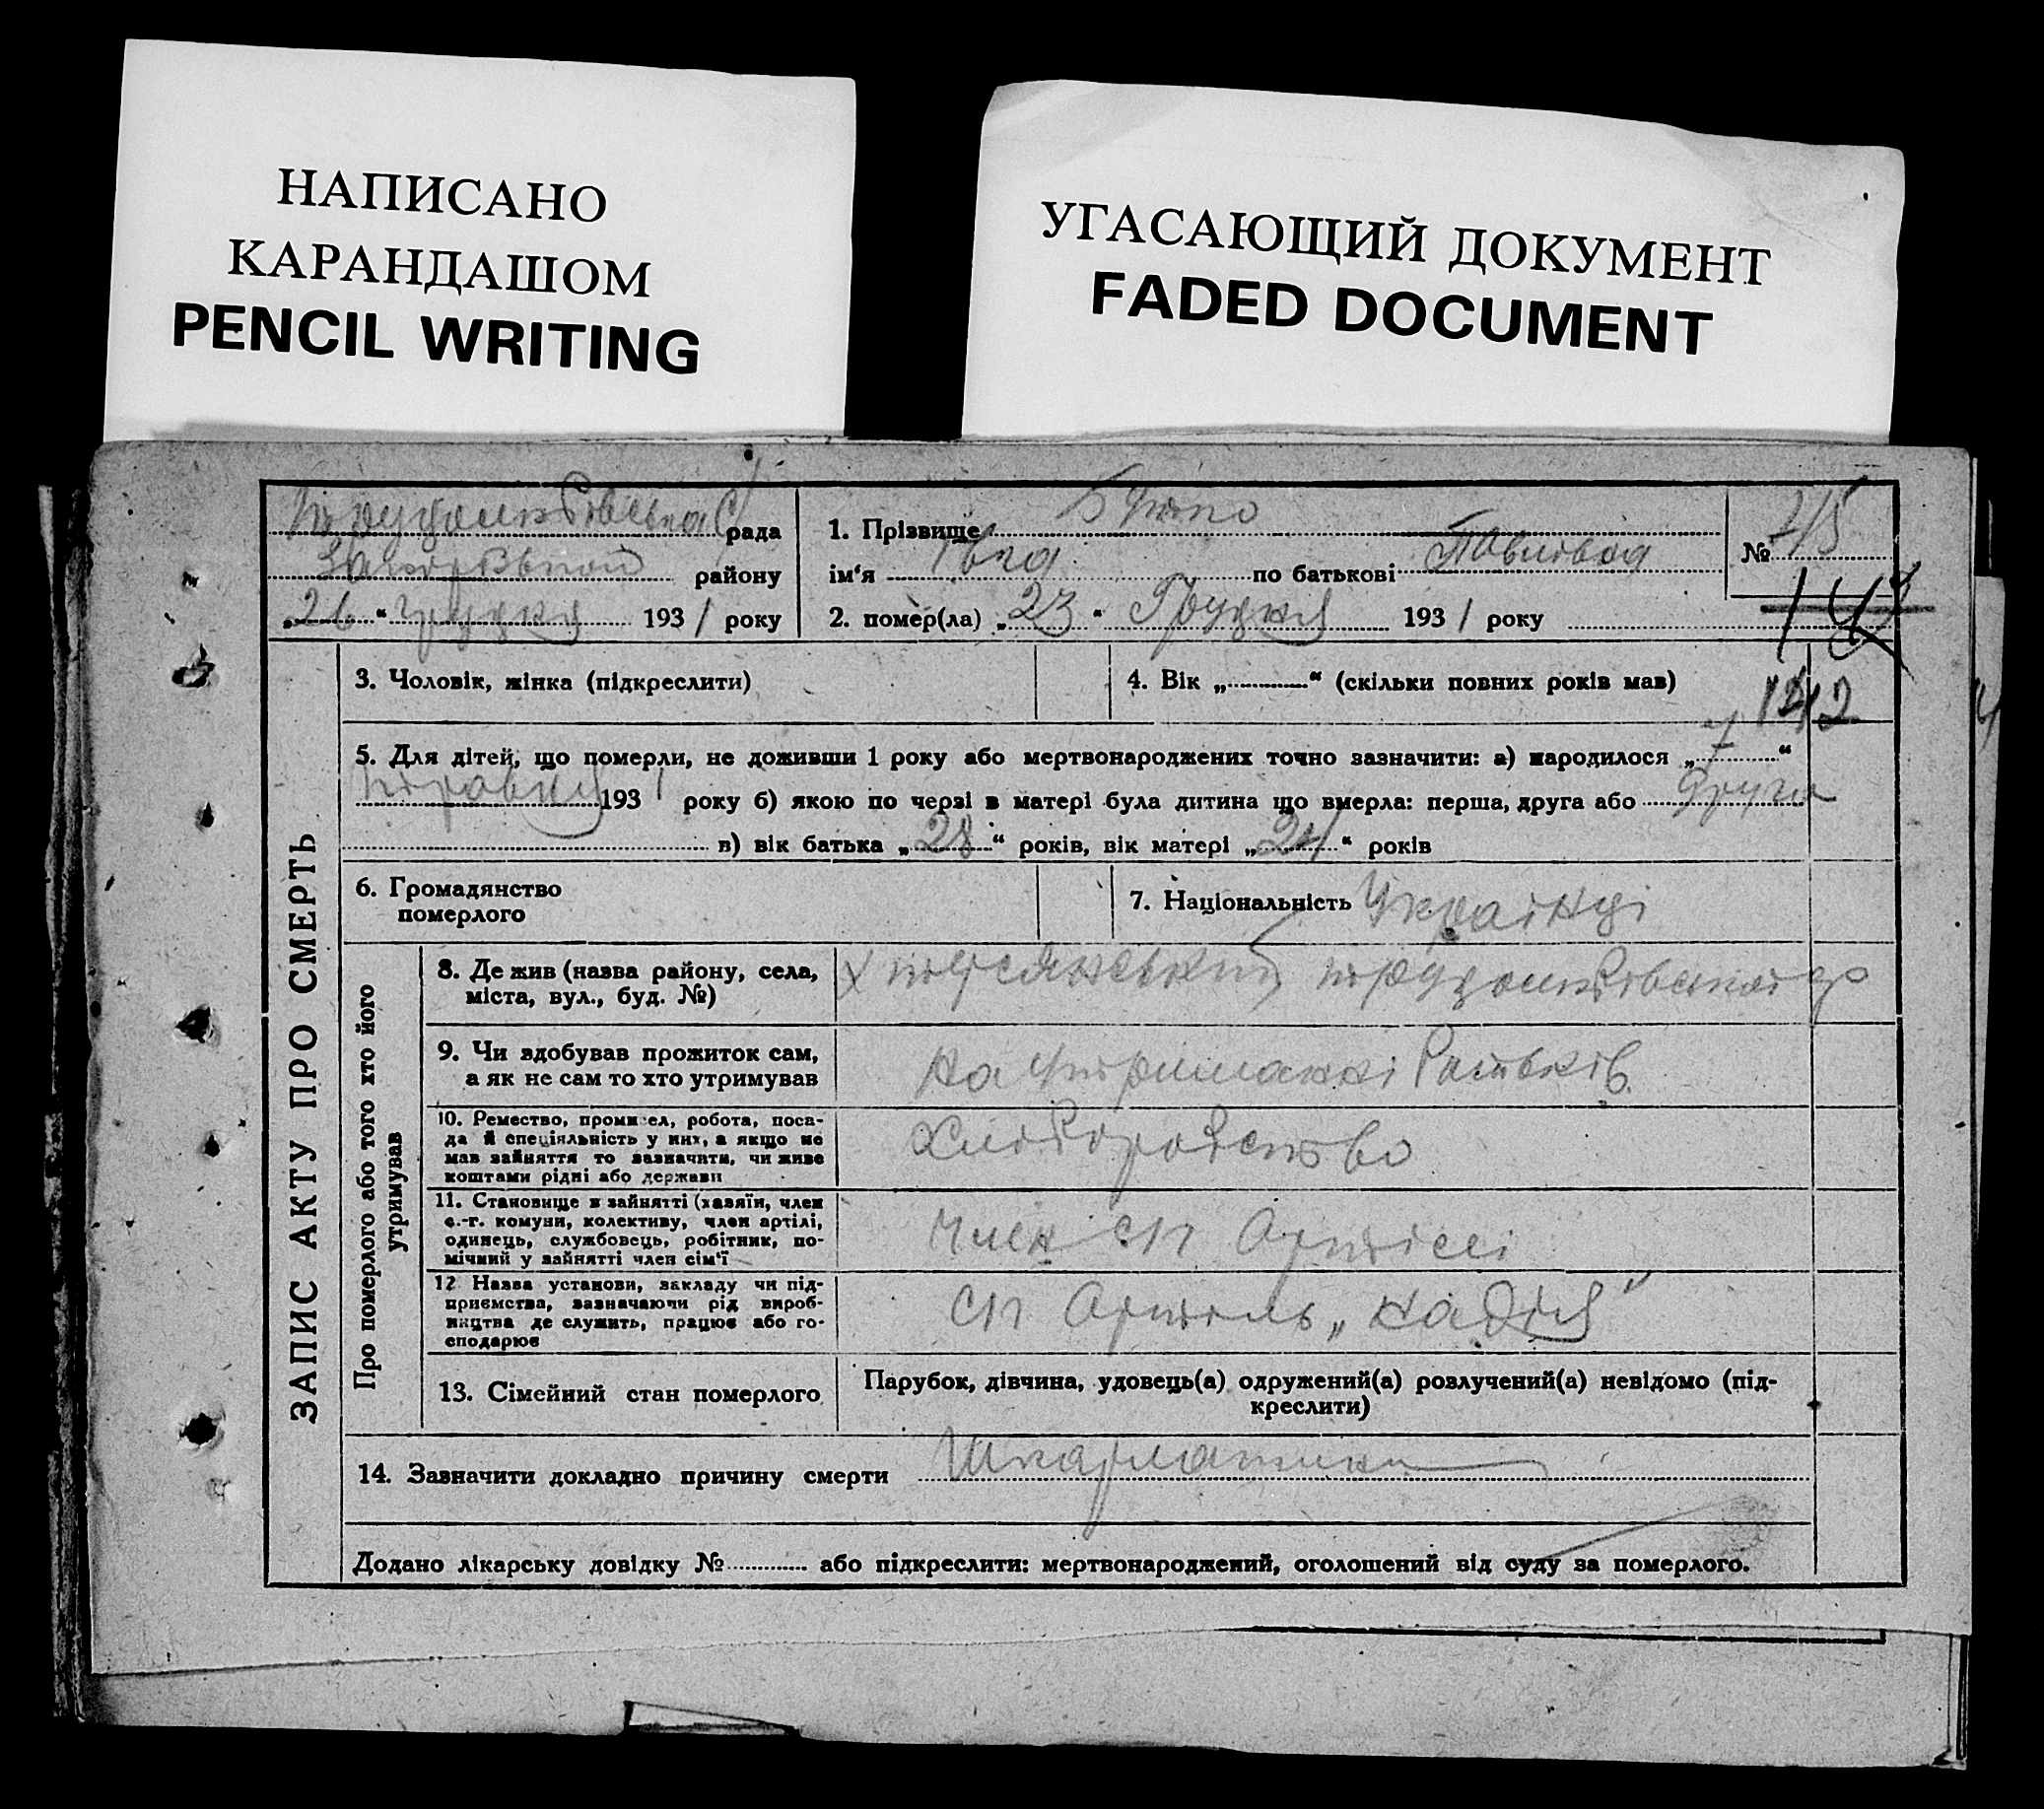 НАПИСАНО
КАРАНДАШОМ
PENCIL WRITING
УГАСАЮЩИЙ ДОКУМЕНТ
FADED DOCUMENT
рада
району
„26“ Грудня 1931 року
1. Прізвище
ім‘я по батькові Павлівна
2. помер(ла) „23“ Грудня 1931 року
№ 715
142
ЗАПИС АКТУ ПРО СМЕРТЬ
3. Чоловік, жінка (підкреслити)
4. Вік „ “ (скільки повних років мав)
5. Для дітей, що померли, не доживши 1 року або мертвонароджених точно зазначити: а) народилося „7“
1931 року б) якою по черзі в матері була дитина що вмерла: перша, друга або друга
в) вік батька „28“ років, вік матері „24“ років
6. Громадянство
померлого
7. Національність Українці
Про померлого або того хто його
утримував
8. Де жив (назва району, села,
міста, вул., буд. №)
9. Чи здобував прожиток сам,
а як не сам то хто утримував
на утриманні батьків
10. Ремество, промисел, робота, поса-
да й спеціяльність у них, а якщо не
мав зайняття то зазначити, чи живе
коштами рідні або держави
Хліборобство
11. Становище в зайнятті (хазяїн, член
с.-г. комуни, колективу, член артілі,
одинець, службовець, робітник, по-
мічний у зайнятті член сім‘ї
Член СГ Артілі
12 Назва установи, закладу чи під-
приємства, зазначаючи рід вироб-
ництва де служить, працює або го-
сподарює
СГ Артіль „Надія“
13. Сімейний стан померлого
Парубок, дівчина, удовець(а) одружений(а) розлучений(а) невідомо (під-
креслити)
14. Зазначити докладно причину смерти Шкарлатина
Додано лікарську довідку № або підкреслити: мертвонароджений, оголошений від суду за померлого.